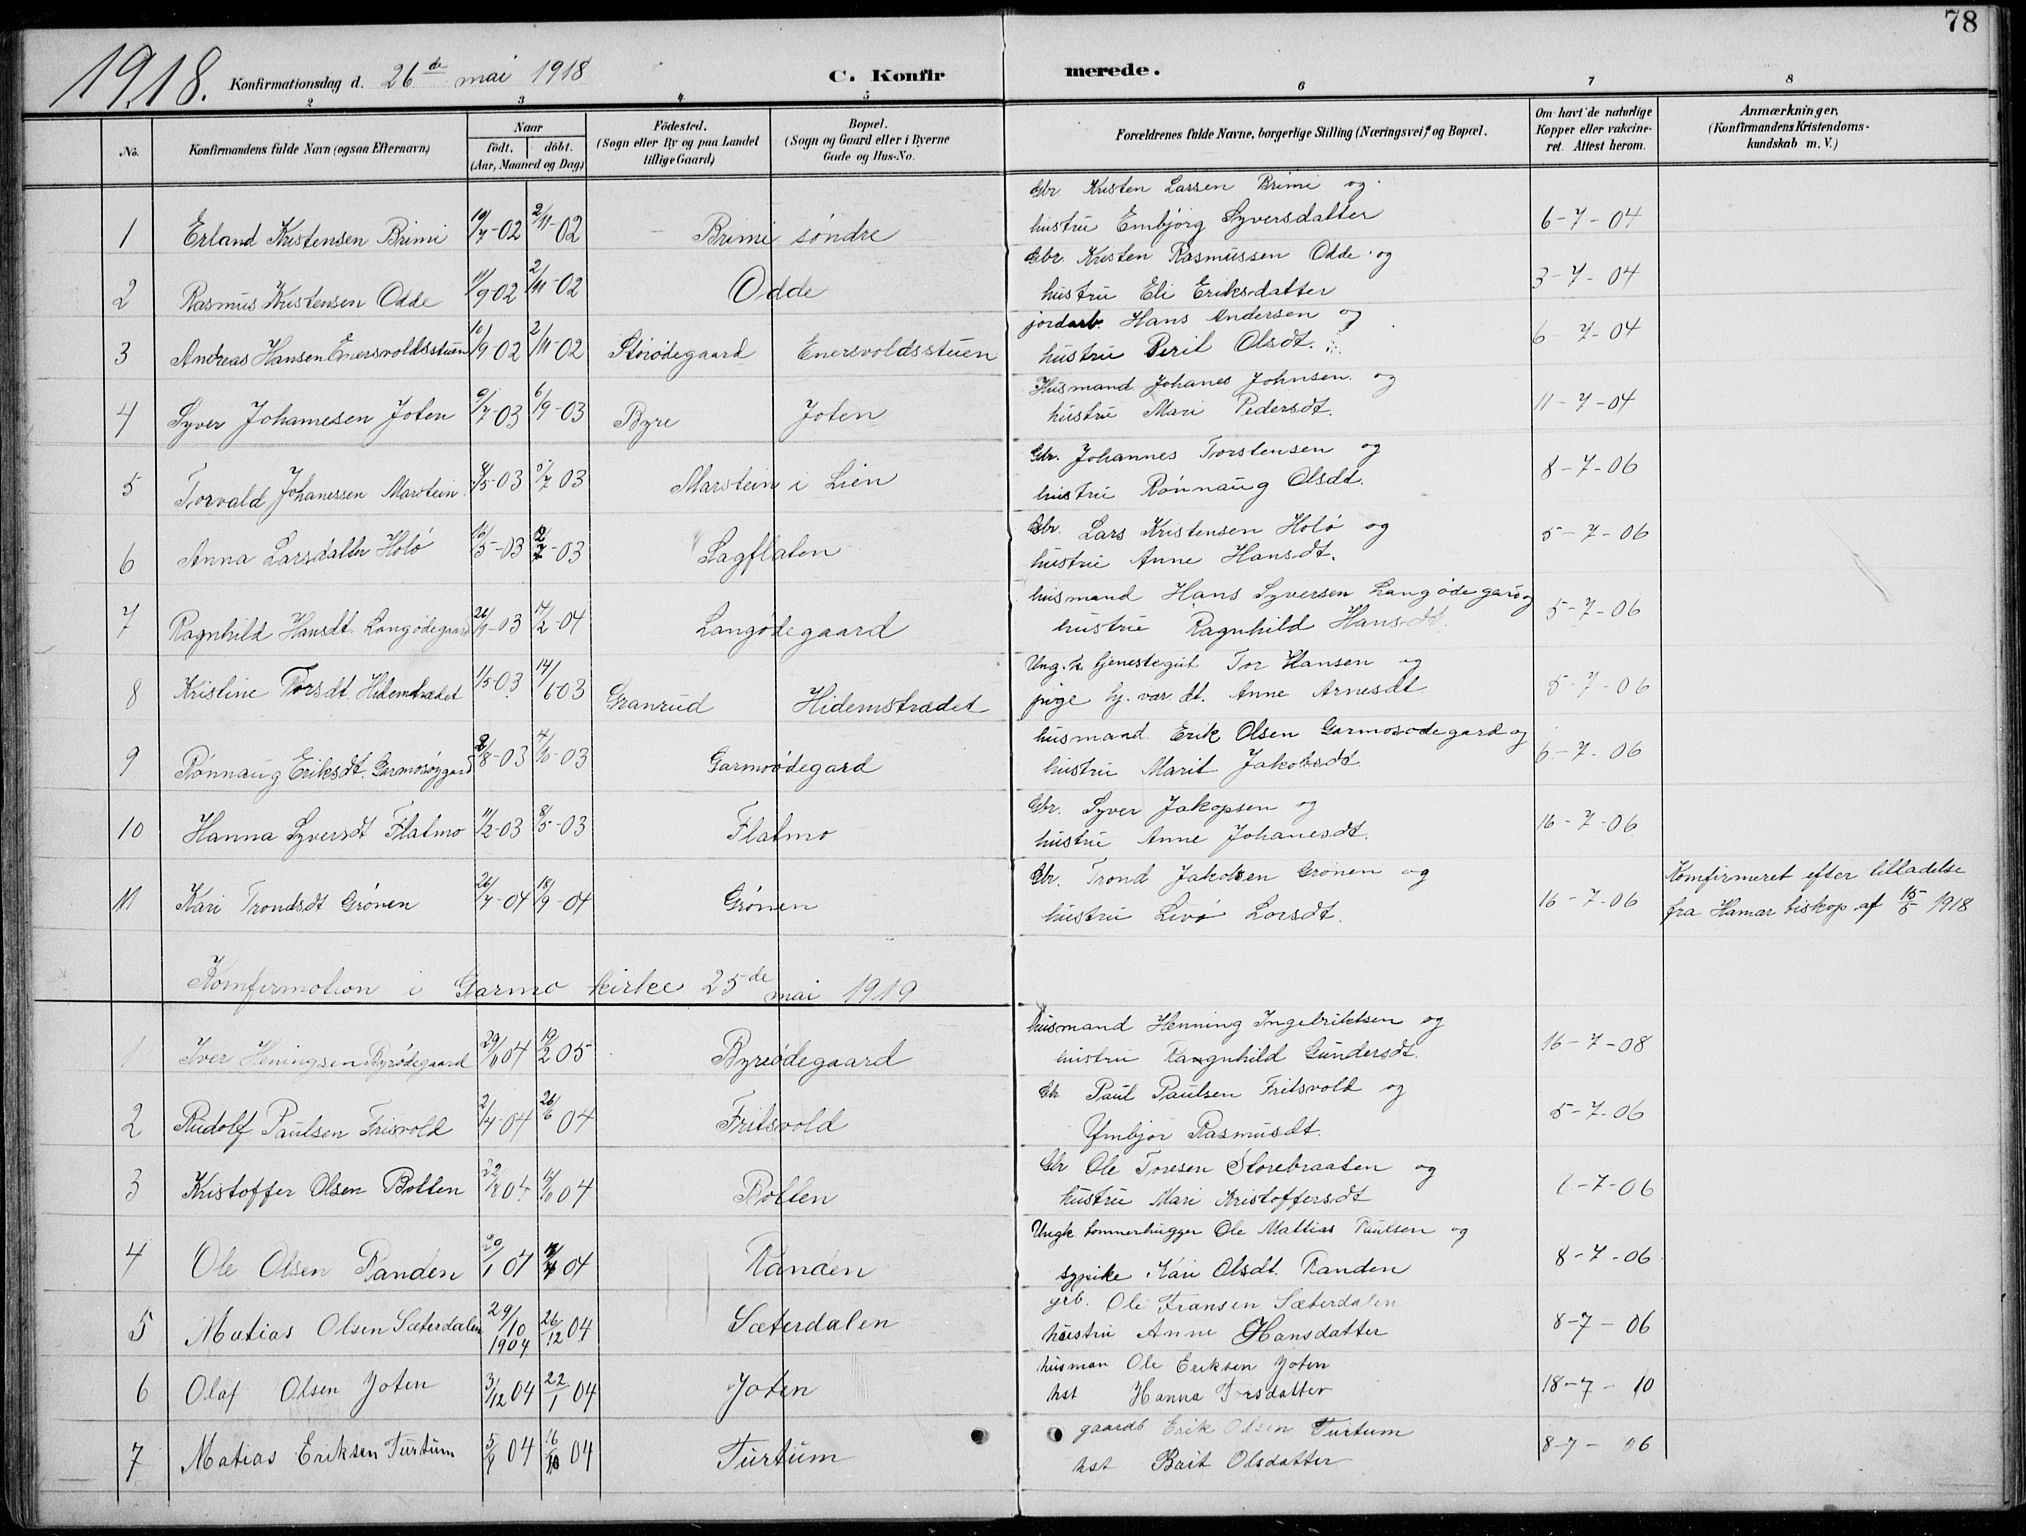 78
1918. Konfirmationsdag d. 26de mai 1918 C. Konfirmerede.
2 3 4 5 6 7 8
No.
Konfirmandens fulde Navn (ogsaa Efternavn)
Naar
födt. döbt.
(Aar, Maaned og Dag)
Födested.
(Sogn eller By og paa Landet
tillige Gaard)
Bopæl.
(Sogn og Gaard eller i Byerne
Gade og Hus-No.
Forældrenes fulde Navne, borgerlige Stilling (Næringsvei) og Bopæl.
Om havt de naturlige
Kopper eller vakcine-
ret. Attest herom.
Anmærkninger,
(Konfirmandens Kristendoms-
kundskab m. V.)
Gbr. Kristen Larsen Brimi og
1 Erland Kristensen Brimi 19/7-02 2/11-02 Brimi søndre hustru Embjörg Syversdatter 6-7-04
Gbr. Kristen Rasmussen Odde og
2 Rasmus Kristensen Odde 11/9-02 2/11-02 Odde hustru Eli Eriksdatter 3-7-04
jordarb. Hans Andersen og
3 Andreas Hansen Enersvoldsstuen 10/9 02 2/11-02 Störödegaard Enersvoldsstuen hustru Peril Olsdt. 6-7-04
Husmand Johanes Johnsen og
4 Syver Johannesen Joten 9/7-03 6/9-03 Byre Joten hustru Mari Pedersdt. 11-7-04
Gbr. Johannes Torstensen og
5 Torvald Johanessen Marstein 8/5-03 5/7 03 Marstein i Lien hustru Rönnaug Olsdt. 8-7-06
Gbr. Lars Kristensen Holö og
6 Anna Larsdatter Holö 15/5-03 12/7-03 Lagflaten hustru Anne Hansdt. 5-7-06
husmand Hans Syversen Langödegard og
7 Ragnhild Hansdt. Langödegaard 26/9-03 14/2-04 Langödegaard hustru Ragnhild Hansdt. 5-7-06
Ung.k. tjenestegut Tor Hansen og
8 Kristine Torsdt. Hidemstrædet 1/5-03 14/6-03 Granrud Hidemstrædet pige hj. vær. dt. Anne Arnesdt 5-7-06
husmand Erik Olsen Garmosödegard og
9 Rönnaug Eriksdt. Garmosöygard 2/8-03 4/10-03 Garmoödegard hustru Marit Jakobsdt. 6-7-06
Gbr. Syver Jakopsen og
10 Hanna Syversdt Flatmo 11/2-03 8/5-03 Flatmo hustru Anne Johanesdt. 16-7-06
Gbr. Trond Jakobsen Grönen og
11 Kari Trondsdt Grönen 26/7-04 18/9-04 Grönen hustru Livö Larsdt. 16-7-06
Komfirmeret efter tilladelse
fra Hamar biskop af 15/5 1918
Komfirmation i Garmo kirke 25de mai 1919
husmand Henning Ingebriktsen og
1 Iver Heningsen Byrödegaard 29/11 04 12/2 05 Byreödegaard hustru Rangnhild Gundersdt. 16-7-08
Gb. Paul Paulsen Fritsvold og
2 Rudolf Paulsen Frisvold 2/4-04 26/6 04 Fritsvold Ymbjor Rasmusdt. 5-7-06
Gbr Ole Toresen Storebraaten og
3 Kristoffer Olsen Botten 22/8 04 16/10 04 Botten hustru Mari Kristoffersdt 6-7-06
Ungk. tømmerhugger Ole Mattias Paulsen og
4 Ole Olsen Randen 20/1 04 4/4 04 Randen sypike Kari Olsdt. Randen 8-7-06
grb. Ole Fransen Sæterdalen
5 Matias Olsen Sæterdalen 29/10 1904 26/12 04 Sæterdalen hustru Anne Hansdatter 8-7-06
husman Ole Eriksen Joten
6 Olaf Olsen Joten 3/12 04 22/1 04 Joten hst Hanna Torsdatter 18-7-10
gaardb Erik Olsen Turtum
7 Matias Eriksen Turtum 5/9 04 16/10 04 Turtum hst Barit Olsdatter 8-7-06